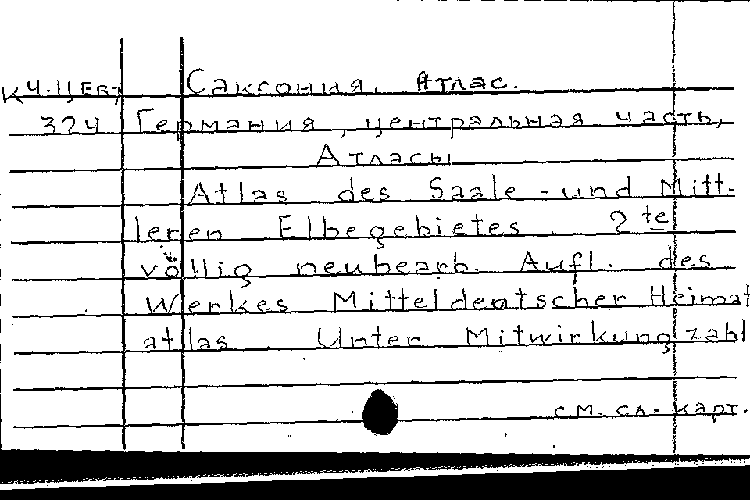 Саксония. Атлас.
324 Германия, центральная часть,
Атласы
Atlas des Saale - und Mitt-
leren Elbegebietes. 2te
völlig neubearb. Aufl. des
Werkes Mitteldeutscher Heimat
atlas. Unter Mitwirkung zahl
см. сл. карт.